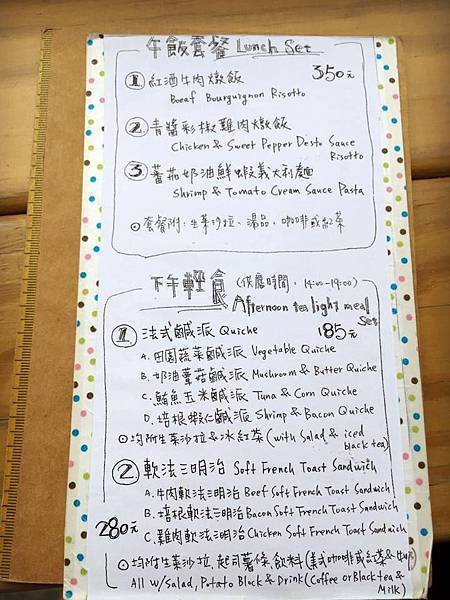 午飯套餐 Lunch Set
① 紅酒牛肉燉飯 350元
Boeaf Bourguignon Risotto
② 青醬彩椒雞肉燉飯
Chicken & Sweet Pepper Desto Sauce
Risotto
③ 蕃茄奶油鮮蝦義大利麵
Shrimp & Tomato Cream Sauce Pasta
⊙套餐附:生菜沙拉、湯品、咖啡或紅茶
下午輕食 (供應時間:14:00-19:00)
Afternoon tea light meal
Set
① 法式鹹派 Quiche 185元
A. 田園蔬菜鹹派 Vegetable Quiche
B. 奶油蘑菇鹹派 Mushroom & Butter Quiche
C. 鮪魚玉米鹹派 Tuna & Corn Quiche
D. 培根蝦仁鹹派 Shrimp & Bacon Quiche
⊙均附生菜沙拉&冰紅茶 (with Salad & iced
black tea)
② 軟法三明治 Soft French Toast Sandwich
A. 牛肉軟法三明治 Beef Soft French Toast Sandwich
280元
B. 培根軟法三明治 Bacon Soft French Toast Sandwich
C. 雞肉軟法三明治 Chicken Soft French Toast Sandwich
⊙均附生菜沙拉 起司薯條 飲料(美式咖啡或紅茶&牛奶)
All w/Salad, Potato Block & Drink (Coffee or Black tea &
Milk)